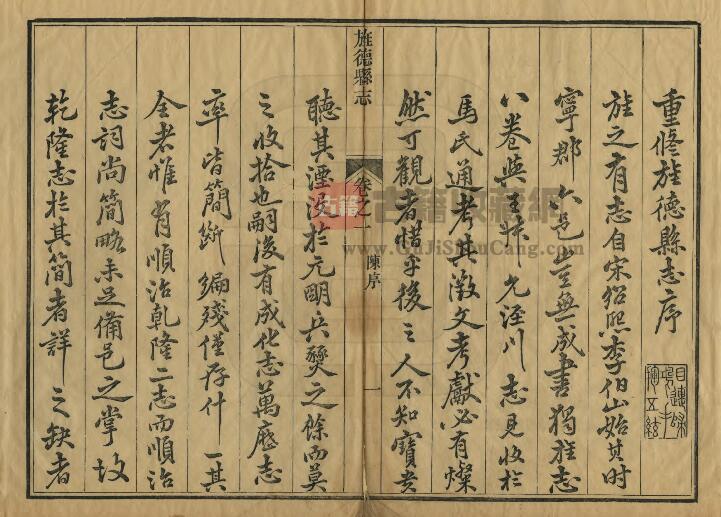 重修旌德縣志序
旌之有志自宋紹熙李伯山始其時
寧郡六邑豈無成書獨旌志
八卷與王 涇川志見收於
馬氏通考其徵文考獻必有燦
然可觀者惜乎後之人不知寶貴
旌德縣志
卷之一
陳序
一
聽其湮沒於元明兵燹之餘而莫
之收拾也嗣後有成化志萬歷志
率皆簡斷編殘僅存什一其
全者惟有順治乾隆二志而順治
志詞尚簡略未足備邑之掌故
乾隆志於其簡者詳之缺者
古籍
古籍收藏網
www.GuJiShuCang.com